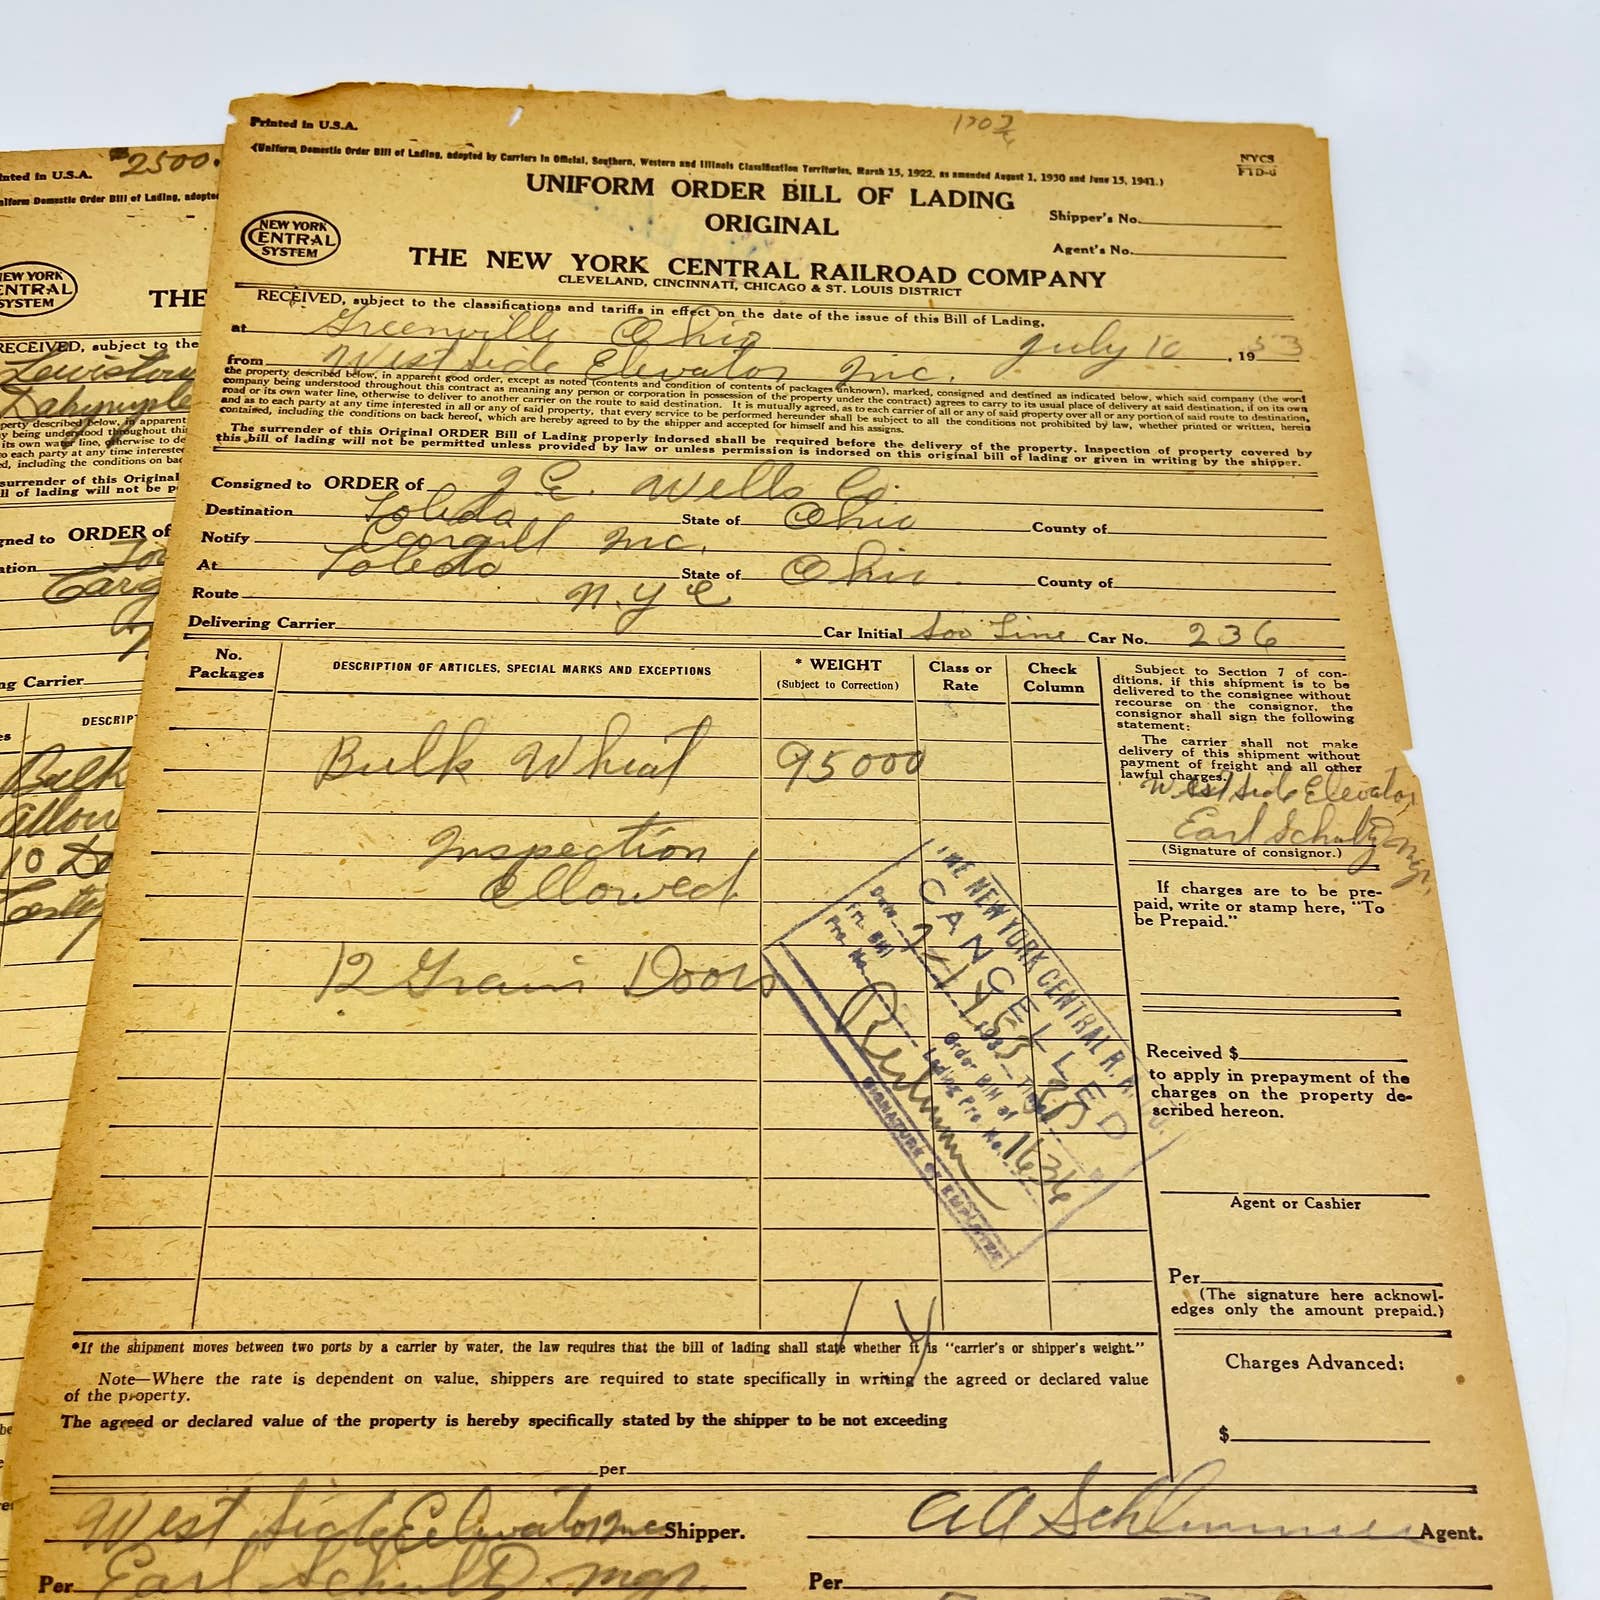 Printed in U.S.A.
1702
(Uniform Domestic Order Bill of Lading, adopted by Carriers in Official, Southern, Western and Illinois Classification Territories, March 15, 1922, as amended August 1, 1930 and June 15, 1941.)
NYCS
UNIFORM ORDER BILL OF LADING
Shipper's No.
ORIGINAL
Agent's No.
NEW YORK
CENTRAL
SYSTEM
THE NEW YORK CENTRAL RAILROAD COMPANY
CLEVELAND, CINCINNATI, CHICAGO & ST. LOUIS DISTRICT
RECEIVED, subject to the classifications and tariffs in effect on the date of the issue of this Bill of Lading,
at Greenville Ohio July 10, 1953
from West Side Elevator Inc.
the property described below, in apparent good order, except as noted (contents and condition of contents of packages unknown), marked, consigned and destined as indicated below, which said company (the word
company being understood throughout this contract as meaning any person or corporation in possession of the property under the contract) agrees to carry to its usual place of delivery at said destination, if on its own
road or its own water line, otherwise to deliver to another carrier on the route to said destination. It is mutually agreed, as to each carrier of all or any of said property over all or any portion of said route to destination,
and as to each party at any time interested in all or any of said property, that every service to be performed hereunder shall be subject to all the conditions not prohibited by law, whether printed or written, herein
contained, including the conditions on back hereof, which are hereby agreed to by the shipper and accepted for himself and his assigns.
The surrender of this Original ORDER Bill of Lading properly indorsed shall be required before the delivery of the property. Inspection of property covered by
this bill of lading will not be permitted unless provided by law or unless permission is indorsed on this original bill of lading or given in writing by the shipper.
Consigned to ORDER of J. E. Wells Co.
Destination Toledo State of Ohio County of
Notify Cargill Inc.
At Toledo State of Ohio County of
Route N.Y.C
Delivering Carrier Car Initial Soo Line Car No. 236
No.
Packages
DESCRIPTION OF ARTICLES, SPECIAL MARKS AND EXCEPTIONS
* WEIGHT
(Subject to Correction)
Class or
Rate
Check
Column
Bulk Wheat 95000
Inspection
Allowed
12 Grain Doors
THE NEW YORK CENTRAL R.R. CO.
CANCELLED
Date 7-14 1953
Frt. Bill
Pro. No.
Order Bill of
Lading Pro No. 1636
SIGNATURE OF EMPLOYEE
Subject to Section 7 of con-
ditions, if this shipment is to be
delivered to the consignee without
recourse on the consignor, the
consignor shall sign the following
statement:
The carrier shall not make
delivery of this shipment without
payment of freight and all other
lawful charges.
West Side Elevator
Earl Schultz Mgr.
(Signature of consignor.)
If charges are to be pre-
paid, write or stamp here, "To
be Prepaid."
Received $
to apply in prepayment of the
charges on the property de-
scribed hereon.
Agent or Cashier
Per
(The signature here acknowl-
edges only the amount prepaid.)
Charges Advanced:
$
*If the shipment moves between two ports by a carrier by water, the law requires that the bill of lading shall state whether it is "carrier's or shipper's weight."
Note—Where the rate is dependent on value, shippers are required to state specifically in writing the agreed or declared value
of the property.
The agreed or declared value of the property is hereby specifically stated by the shipper to be not exceeding
per
West Side Elevator Inc Shipper.
Agent.
Per Earl Schultz mgr.
Per
2500.
inted in U.S.A.
niform Domestic Order Bill of Lading, adopted
NEW YORK
CENTRAL
SYSTEM
THE
RECEIVED, subject to the
Lewistown
Dalrymple
ORDER of
ng Carrier
DESCRIPT
Bulk
allow
10 Do